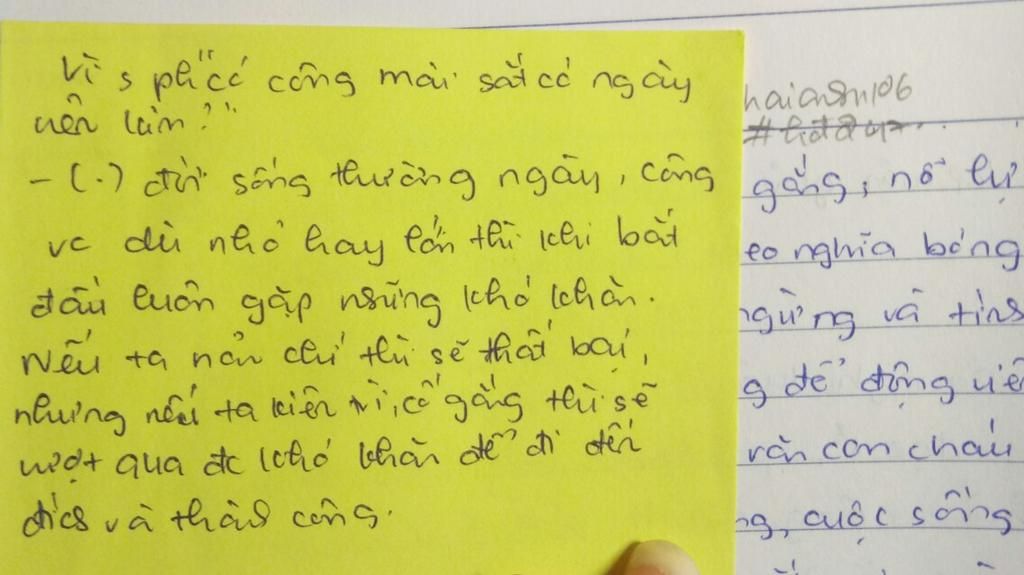 Vì s phỉ "có công mài sắt có ngày
nên kim?"
- (.) đời sống thường ngày, công
vc dù nhỏ hay lớn thì khi bắt
đầu luôn gặp những khó khăn.
Nếu ta nản chí thì sẽ thất bại,
nhưng nếu ta kiên trì, cố gắng thì sẽ
vượt qua đc khó khăn để đi đến
đích và thành công.
gắng, nỗ lực
eo nghĩa bóng
ngừng và tinh
g để động viên
răn con cháu
ng, cuộc sống